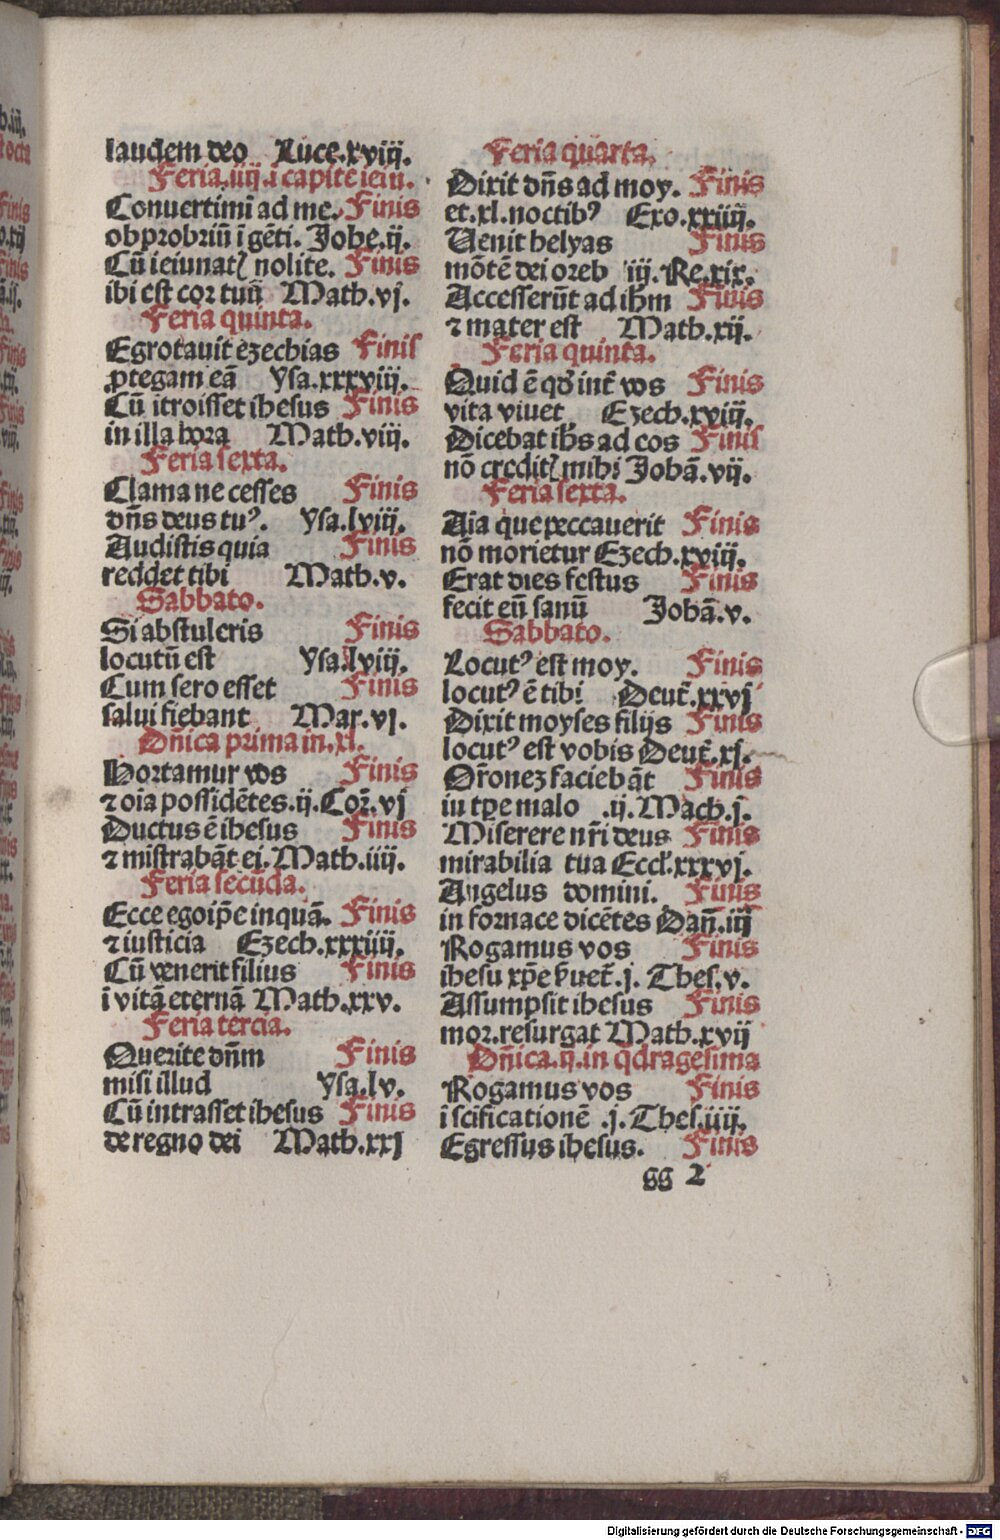 laudem deo Luce.xviij.
Feria.iiij.ī capite ieiu.
Conuertimī ad me. Finis
obprobriū ī gēti. Johe.ij.
Cū ieiunatꝭ nolite. Finis
ibi est cor tuū Math.vj.
Feria quinta.
Egrotauit ezechias Finis
ꝓtegam eā Ysa.xxxviij.
Cū ītroisset ihesus Finis
in illa hora Math.viij.
Feria sexta.
Clama ne cesses Finis
dn̄s deus tuꝰ. Ysa.lviij.
Audistis quia Finis
reddet tibi Math.v.
Sabbato.
Si abstuleris Finis
locutū est Ysa.lviij.
Cum sero esset Finis
salui fiebant Mar.vj.
Dn̄ica prima in.xl.
Hortamur vos Finis
⁊ oīa possidētes.ij.Cor̄.vj
Ductus ē ihesus Finis
⁊ mīstrabāt ei. Math.iiij.
Feria secūda.
Ecce ego ip̄e inquā. Finis
⁊ iusticia Ezech.xxxiiij.
Cū venerit filius Finis
ī vitā eternā Math.xxv.
Feria tercia.
Querite dn̄m Finis
misi illud Ysa.lv.
Cū intrasset ihesus Finis
de regno dei Math.xxj
Feria quarta.
Dixit dn̄s ad moy. Finis
et.xl.noctibꝰ Exo.xxiiij.
Uenit helyas Finis
mōtē dei oreb iij.Re.xix.
Accesserūt ad ihm̄ Finis
⁊ mater est Math.xij.
Feria quinta.
Quid ē qd̓ int̄ vos Finis
vita viuet Ezech.xviij.
Dicebat ihs̄ ad eos Finis
nō creditꝭ mihi Johā.vij.
Feria sexta.
Aīa que peccauerit Finis
nō morietur Ezech.xviij.
Erat dies festus Finis
fecit eū sanū Johā.v.
Sabbato.
Locutꝰ est moy. Finis
locutꝰ ē tibi Deut̄.xxvj
Dixit moyses filijs Finis
locutꝰ est vobis Deut̄.xj.
Or̄onez faciebāt Finis
iu tp̄e malo .ij.Mach.j.
Miserere nr̄i deus Finis
mirabilia tua Eccl̓.xxxvj.
Angelus domini. Finis
in fornace dicētes Dan̄.iij
Rogamus vos Finis
ihesu xp̄e ꝟuet̄.j.Thes.v.
Assumpsit ihesus Finis
mor.resurgat Math.xvij
Dn̄ica.ij.in q̄dragesima
Rogamus vos Finis
ī scificationē .j.Thes.iiij.
Egressus ihesus. Finis
gg 2
Digitalisierung gefördert durch die Deutsche Forschungsgemeinschaft - DFG